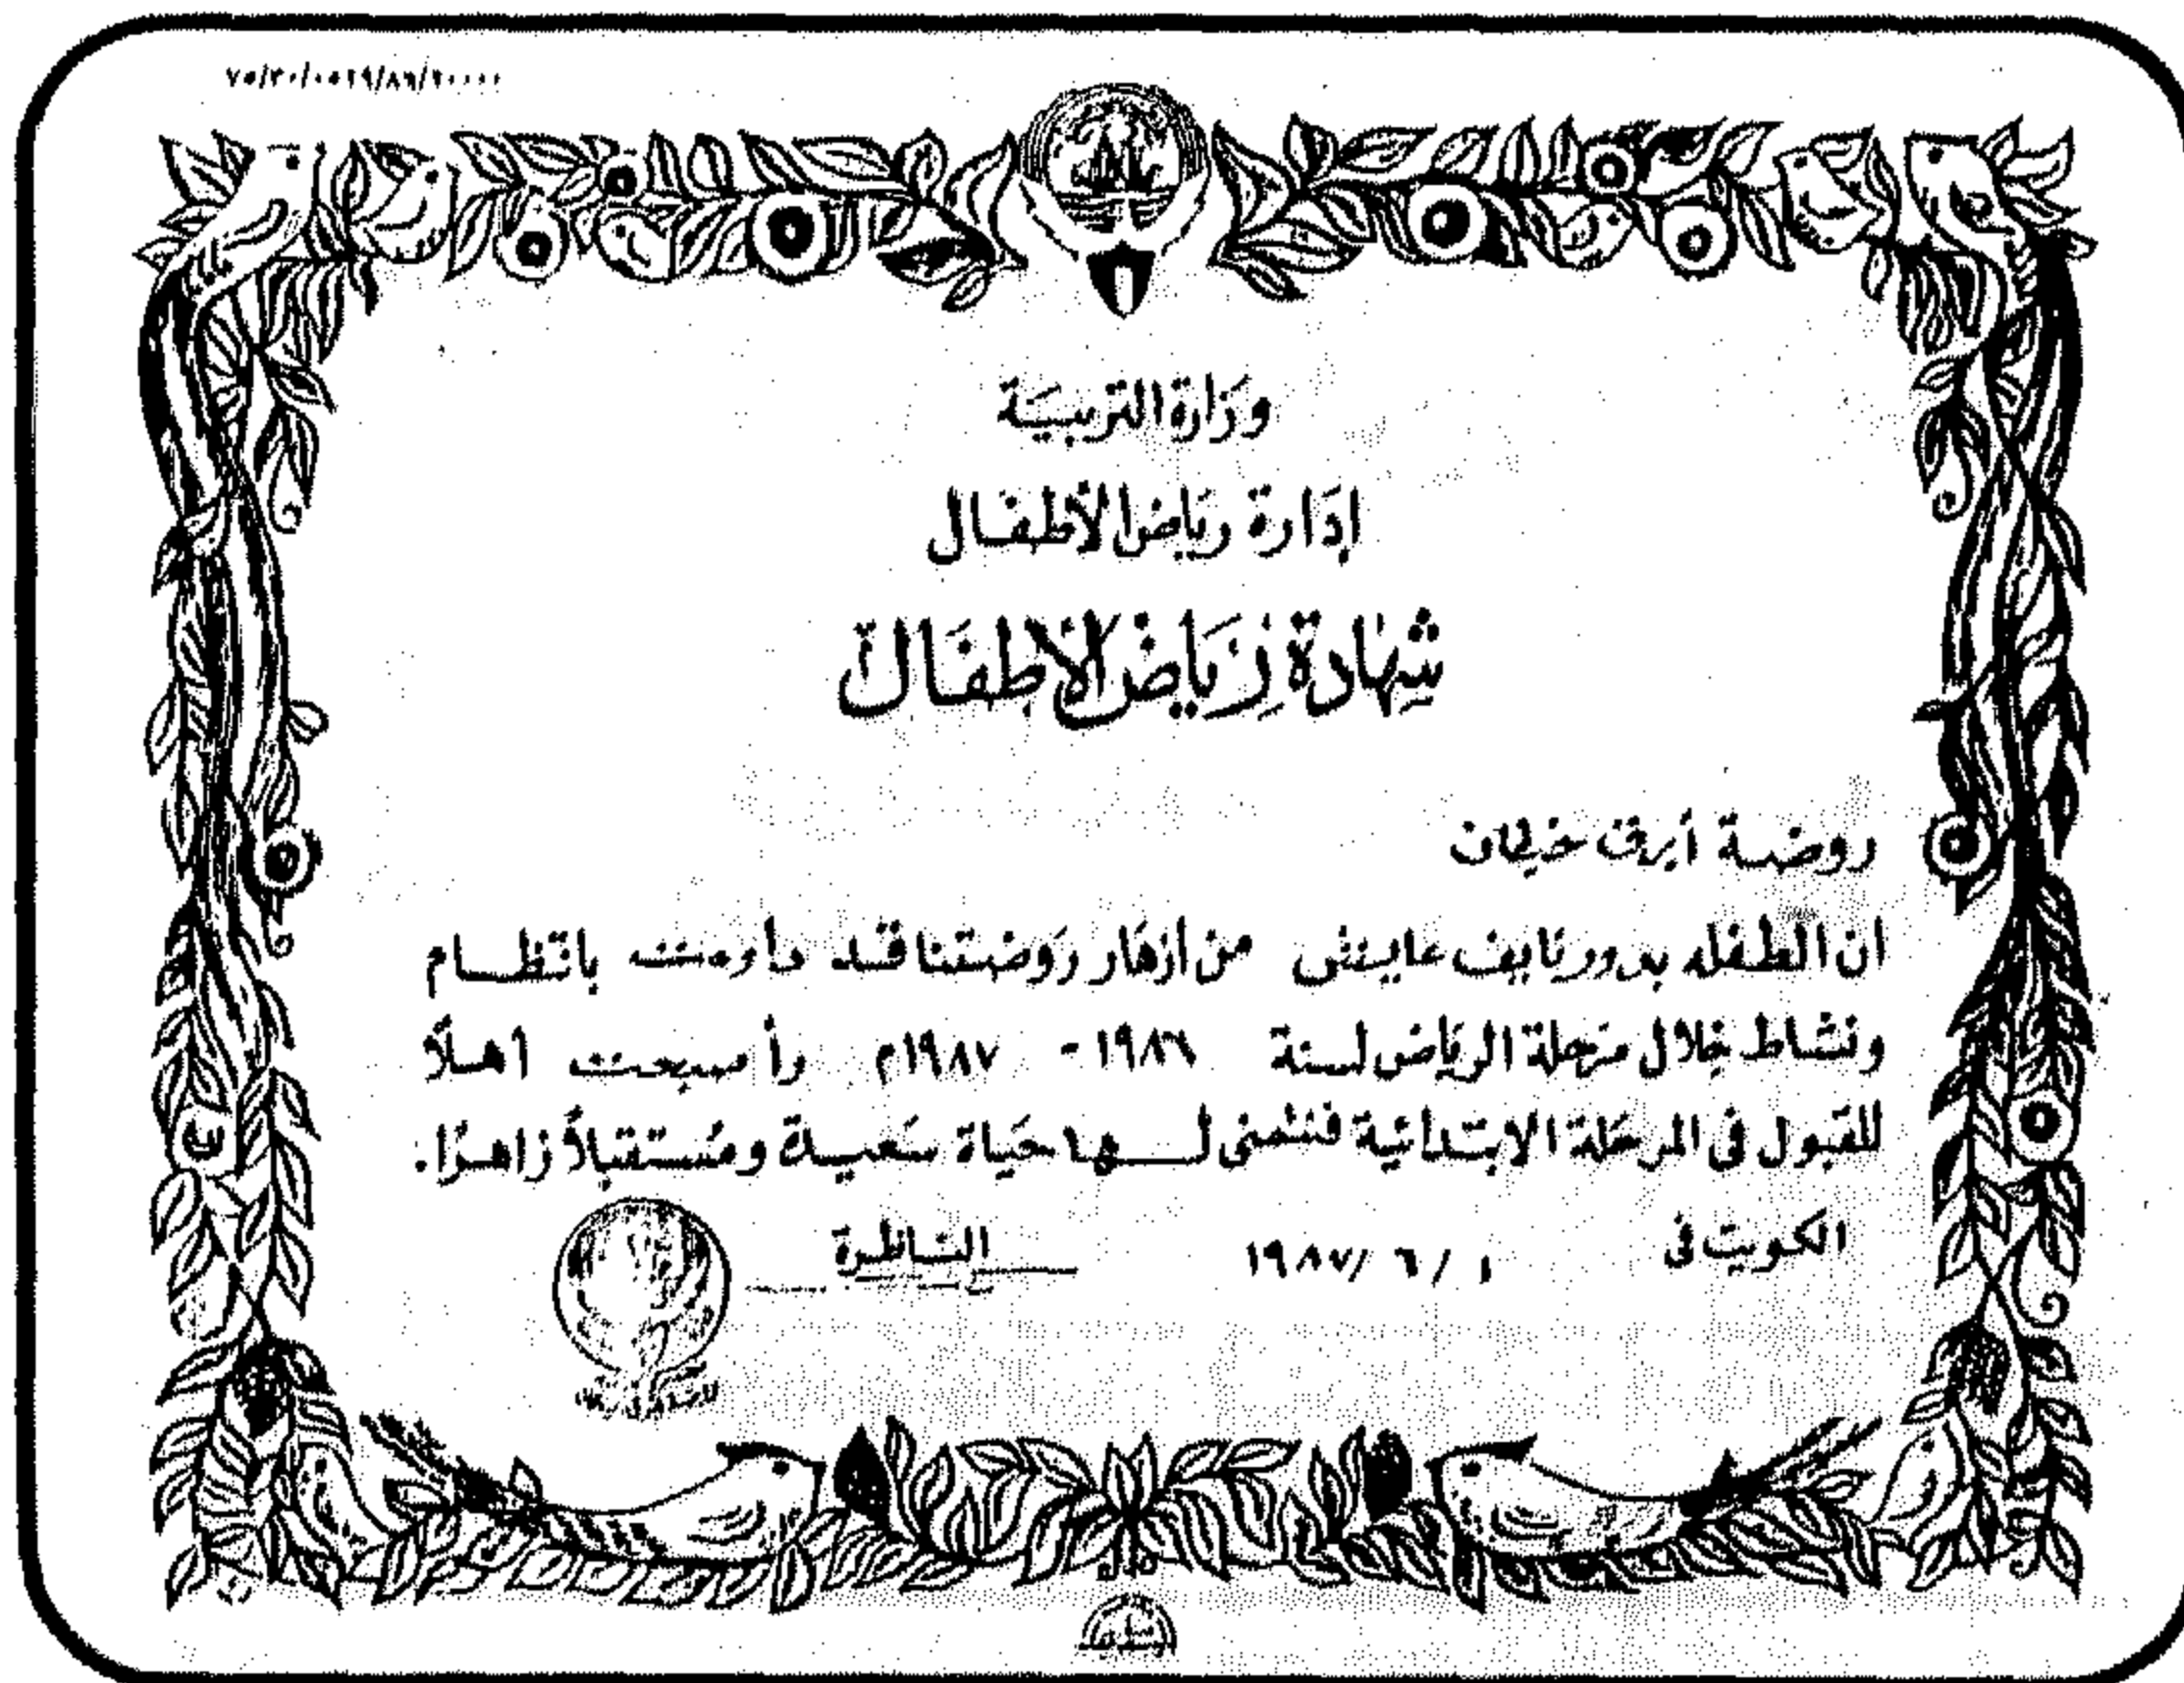 وزارة التربية
إدارة رياض الأطفال
شهادة رياض الأطفال
روضة أبرق خيطان
ان الطفله بدور نايف عايش من أزهار روضتنا قد داومت بانتظام
ونشاط خلال مرحلة الرياض لسنة ١٩٨٦ - ١٩٨٧م وأصبحت أهلاً
للقبول في المرحلة الابتدائية فنتمنى لها حياة سعيدة ومستقبلاً زاهراً.
الكويت في ١ / ٦ / ١٩٨٧ الناظرة